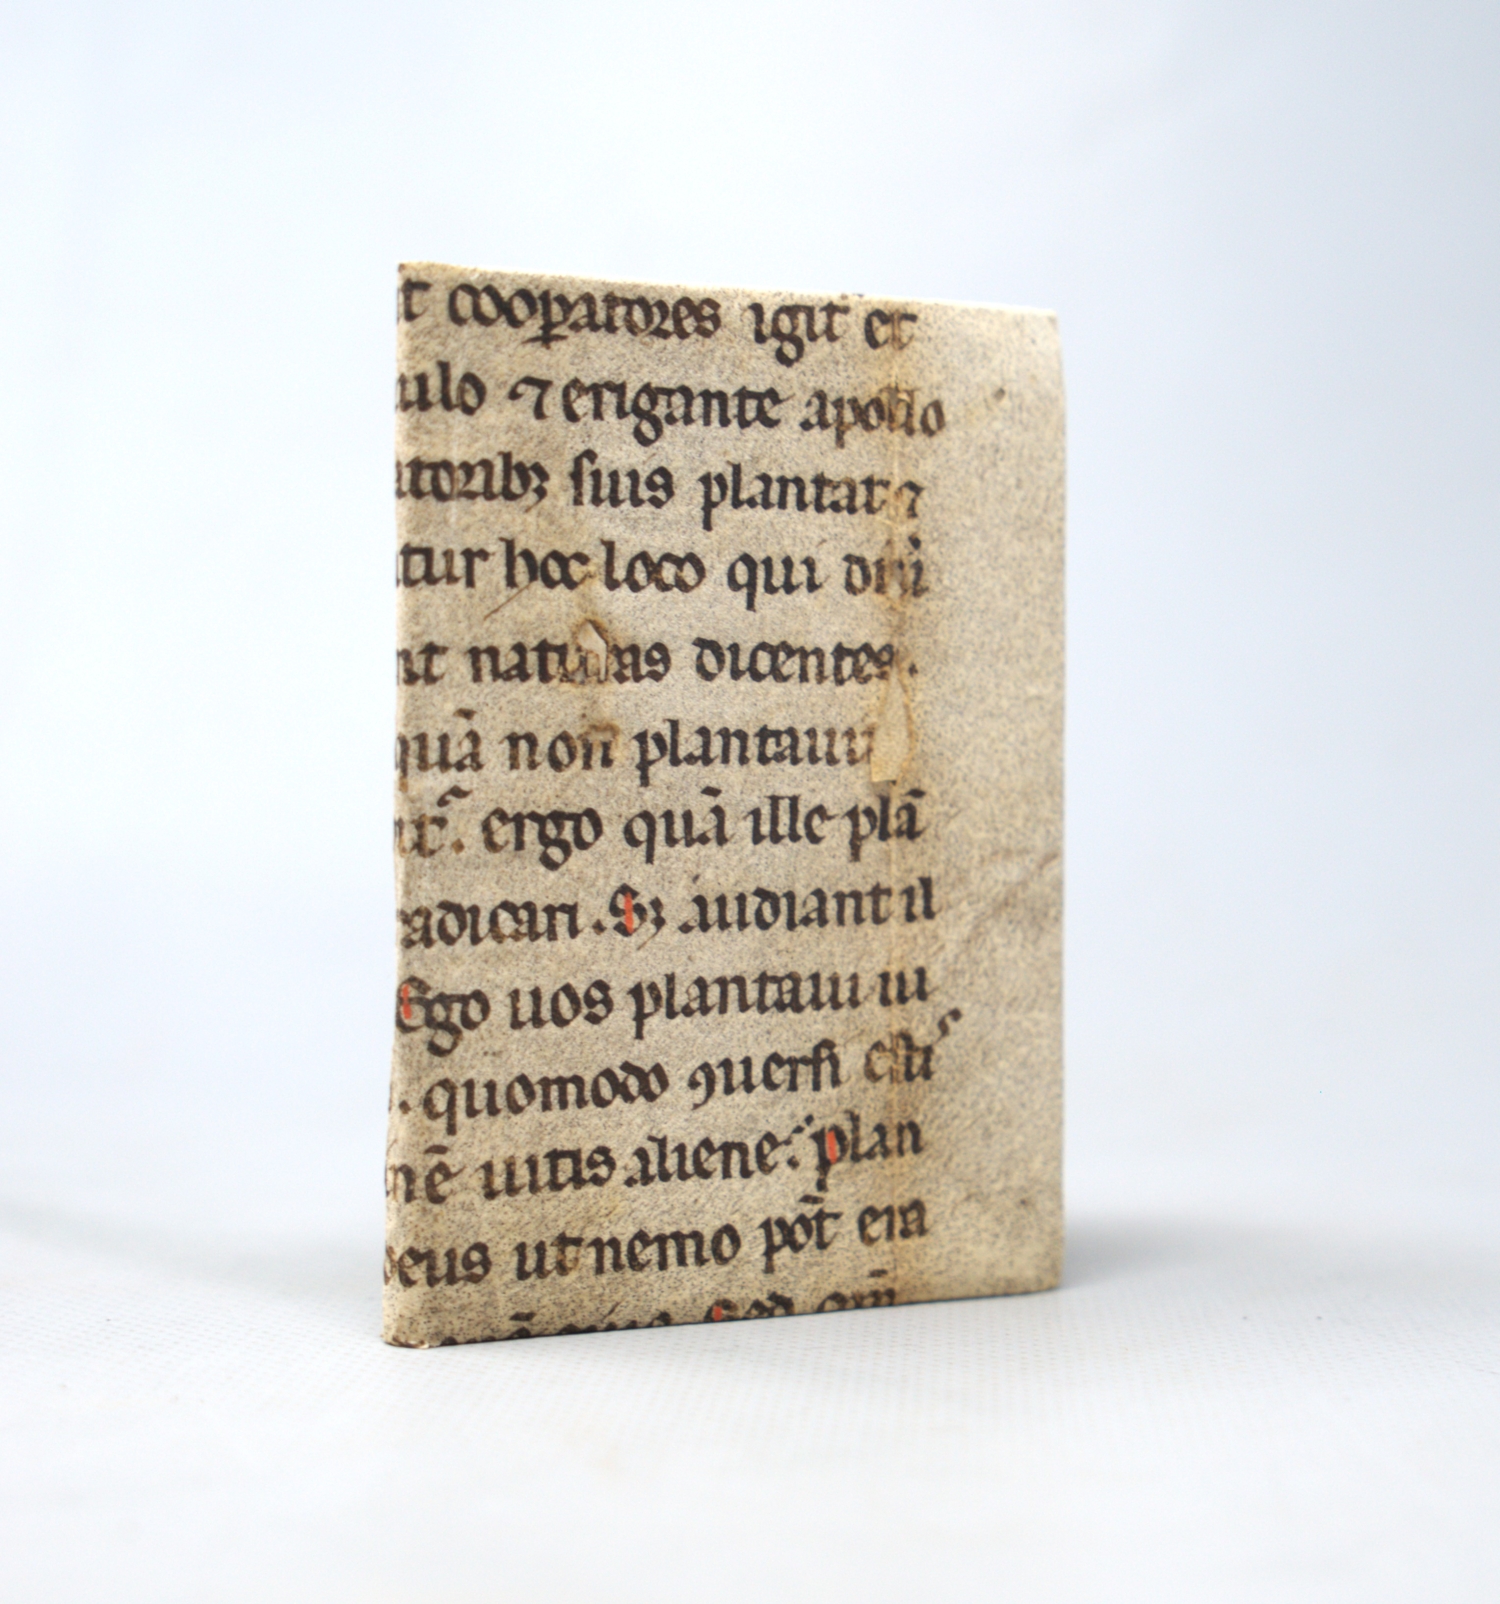 t cooꝑatores igit et
ulo ⁊ erigante apollo
atoribꝫ suis plantat ⁊
tur hoc loco qui diui
nt naturas dicentes.
quā non plantauit
ergo quā ille plā
radicari. Sꝫ audiant il
Ego uos plantaui ui
. quomodo ꝯuersi esti
nē uitis aliene: plan
deus ut nemo pōt era
Sed om̄